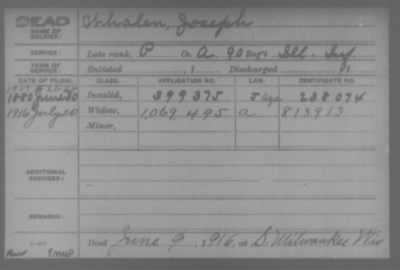 DEAD Whalen, Joseph
NAME OF SOLDIER:
SERVICE: Late rank, P Co. A, 90 Reg't Ill. Inf.
TERM OF SERVICE: Enlisted , 1 Discharged , 1
DATE OF FILING. CLASS. APPLICATION NO. LAW. CERTIFICATE NO.
1880 June 30 Invalid, 399375 238074
1916 July 20 Widow, 1,069,495 a 813913
Minor,
ADDITIONAL SERVICES:
REMARKS:
Died June 9, 1916, at S. Milwaukee Wis